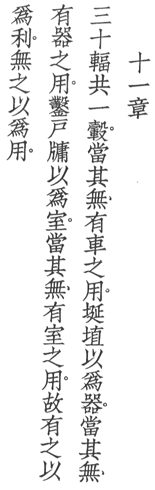 十一章
三十輻共一轂。當其無、有車之用。埏埴以爲器。當其無、
有器之用。鑿戶牖以爲室。當其無、有室之用。故有之以
爲利。無之以爲用。